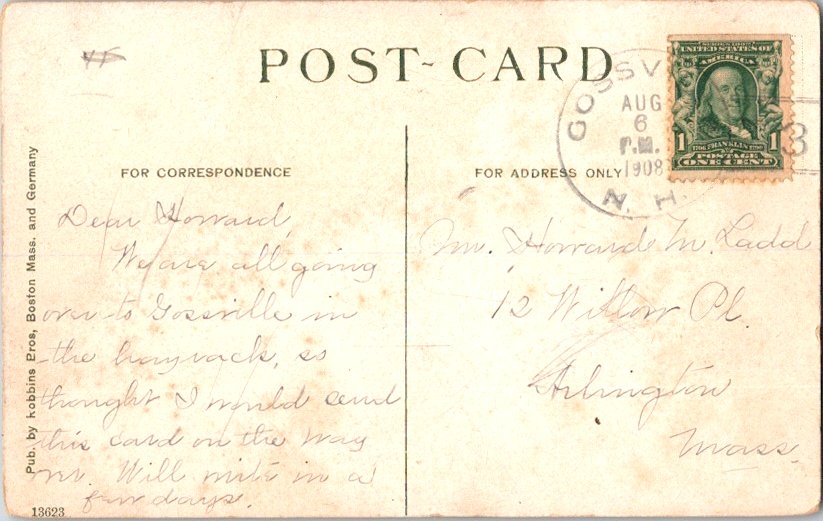 POST-CARD
GOSSV
AUG
6
P.M.
1908
N. H.
3
SERIES 1902
UNITED STATES OF
AMERICA
1 1706 FRANKLIN 1790 1
POSTAGE
ONE CENT
FOR CORRESPONDENCE
FOR ADDRESS ONLY
Dear Howard,
We are all going
over to Gossville in
the hayrack, so
thought I would send
this card on the way
Will write in a
few days.
Mr. Howard M. Ladd
12 Willow Pl.
Arlington
Mass.
Pub. by Robbins Bros, Boston Mass. and Germany
13623